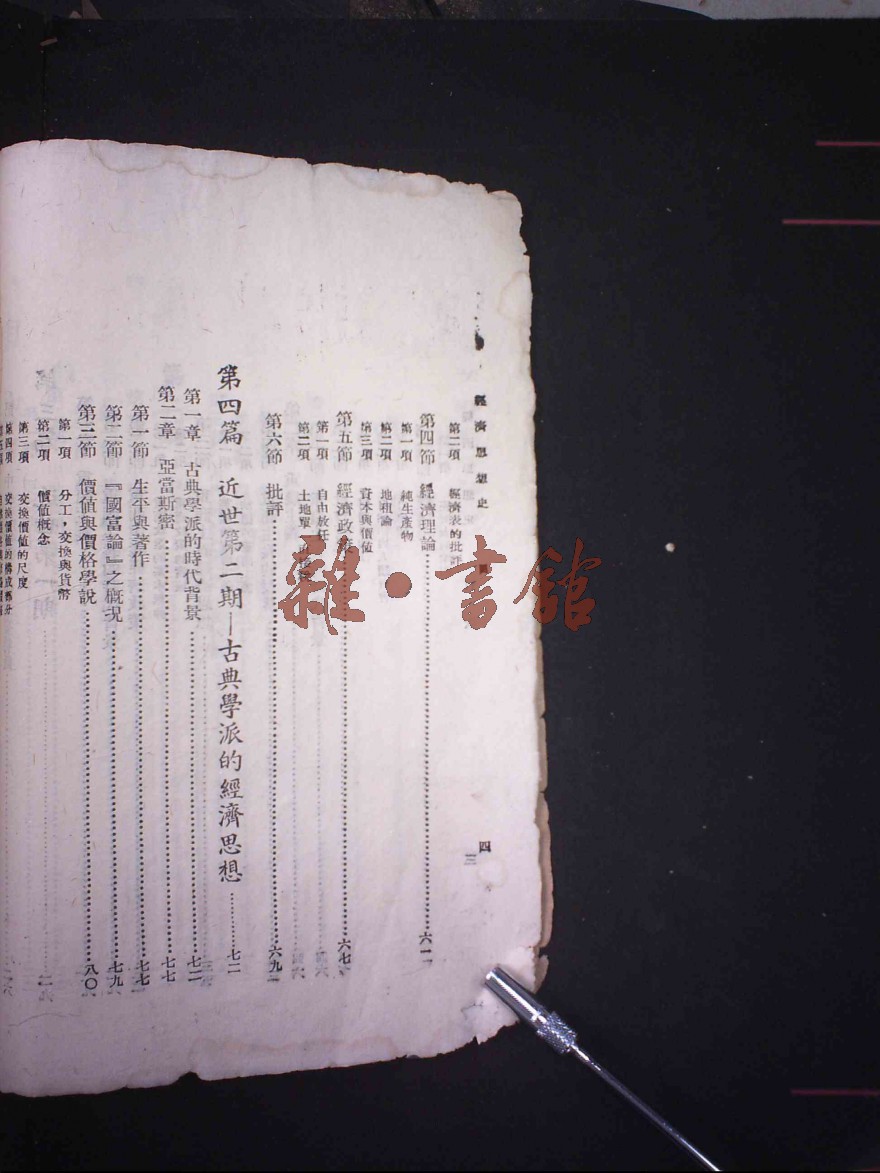 經濟思想史
四
第二項 經濟表的批評
第四節 經濟理論……六一
第一項 純生產物
第二項 地租論
第三項 資本與價值
第五節 經濟政策……六七
第一項 自由放任
第二項 土地單
第六節 批評……六九
第四篇 近世第二期—古典學派的經濟思想……七二
第一章 古典學派的時代背景……七二
第二章 亞當斯密……七七
第一節 生平與著作……七七
第二節 『國富論』之概况……七九
第三節 價值與價格學說……八〇
第一項 分工，交換與貨幣
第二項 價值概念
第三項 交換價值的尺度
第四項 交換價值的構成部分
雜·書館